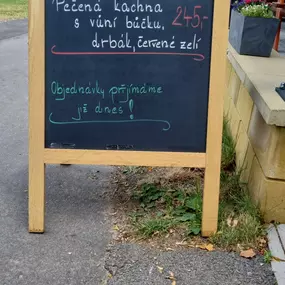 Pečená kachna
s vůní bůčku, 245,-
drbák, červené zelí
Objednávky přijímáme
již dnes!